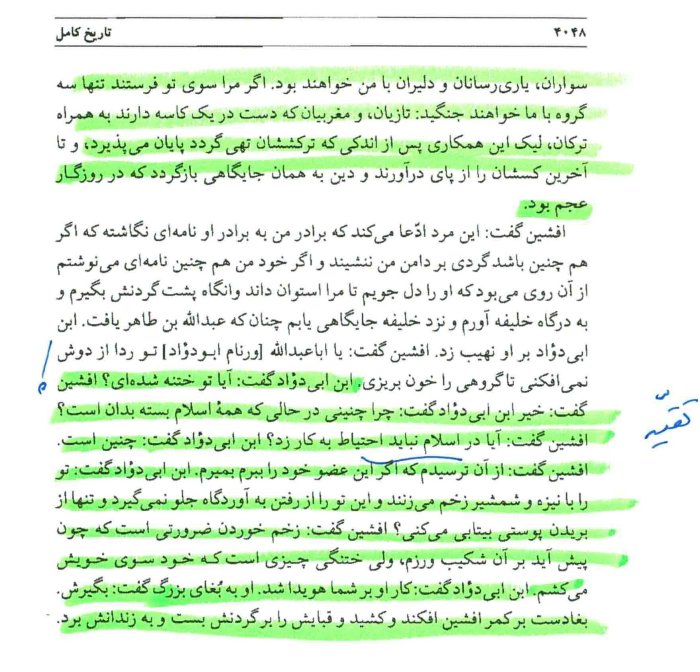 ۴۰۴۸
تاریخ کامل
سواران، یاری‌رسانان و دلیران با من خواهند بود. اگر مرا سوی تو فرستند تنها سه
گروه با ما خواهند جنگید: تازیان، و مغربیان که دست در یک کاسه دارند به همراه
ترکان، لیک این همکاری پس از اندکی که ترکششان تهی گردد پایان می‌پذیرد، و تا
آخرین کسشان را از پای درآورند و دین به همان جایگاهی بازگردد که در روزگار
عجم بود.
افشین گفت: این مرد ادّعا می‌کند که برادر من به برادر او نامه‌ای نگاشته که اگر
هم چنین باشد گردی بر دامن من ننشیند و اگر خود من هم چنین نامه‌ای می‌نوشتم
از آن روی می‌بود که او را دل جویم تا مرا استوان داند وانگاه پشت گردنش بگیرم و
به درگاه خلیفه آورم و نزد خلیفه جایگاهی یابم چنان که عبدالله بن طاهر یافت. ابن
ابی‌دؤاد بر او نهیب زد. افشین گفت: یا اباعبدالله [ورنام ابودؤاد] تو ردا از دوش
نمی‌افکنی تا گروهی را خون بریزی. ابن ابی‌دؤاد گفت: آیا تو ختنه شده‌ای؟ افشین
گفت: خیر ابن ابی‌دؤاد گفت: چرا چنینی در حالی که همهٔ اسلام بسته بدان است؟
تقیّه
افشین گفت: آیا در اسلام نباید احتیاط به کار زد؟ ابن ابی‌دؤاد گفت: چنین است.
افشین گفت: از آن ترسیدم که اگر این عضو خود را ببرم بمیرم. ابن ابی‌دؤاد گفت: تو
را با نیزه و شمشیر زخم می‌زنند و این تو را از رفتن به آوردگاه جلو نمی‌گیرد و تنها از
بریدن پوستی بیتابی می‌کنی؟ افشین گفت: زخم خوردن ضرورتی است که چون
پیش آید بر آن شکیب ورزم، ولی ختنگی چیزی است که خود سوی خویش
می‌کشم. ابن ابی‌دؤاد گفت: کار او بر شما هویدا شد. او به بُغای بزرگ گفت: بگیرش.
بغادست بر کمر افشین افکند و کشید و قبایش را بر گردنش بست و به زندانش برد.